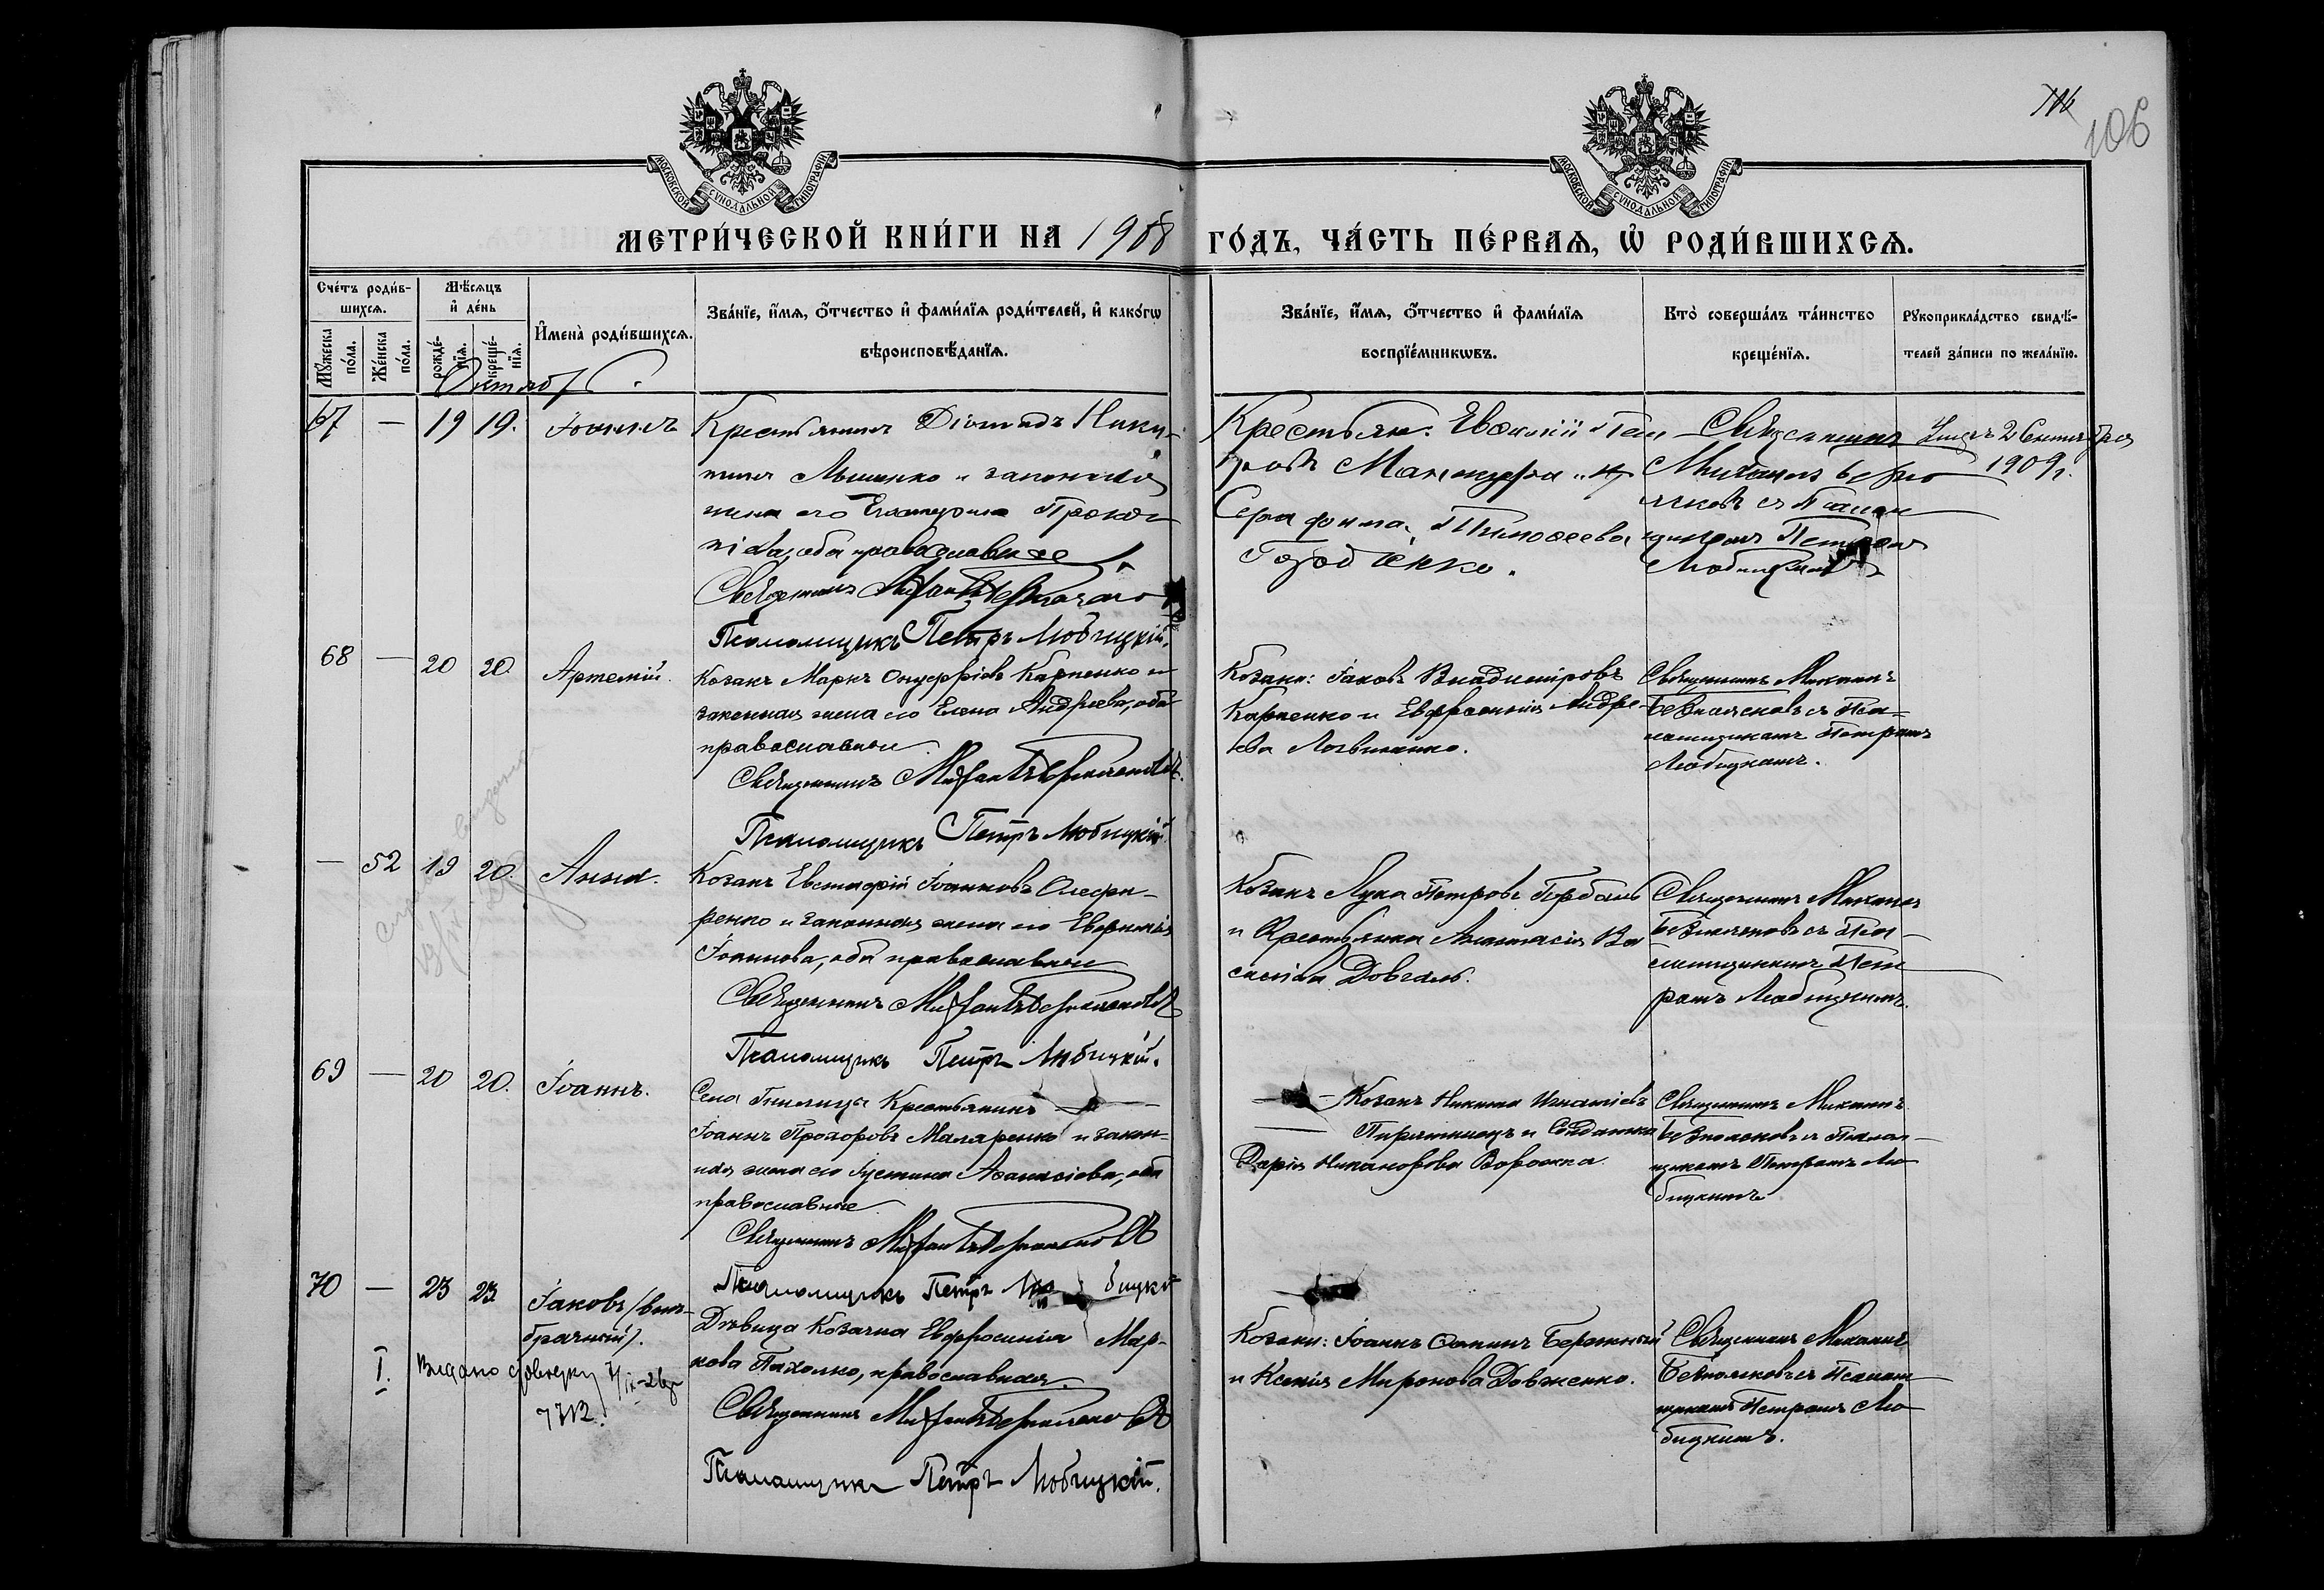 106
МОСКОВСКОЙ СѴНОДАЛЬНОЙ ТИПОГРАФІИ
МОСКОВСКОЙ СѴНОДАЛЬНОЙ ТИПОГРАФІИ
МЕТРИ́ЧЕСКОЙ КНИ́ГИ НА 1908 ГО́ДЪ, ЧА́СТЬ ПЕ́РВАѦ, Ѡ҆ РОДИ́ВШИХСѦ.
Сче́тъ роди́в-
шихсѧ.
Мꙋ́жеска по́ла.
Же́нска по́ла.
Мѣ́сѧцъ
и҆ де́нь
рожде́-
нїѧ.
креще́-
нїѧ.
И҆мена̀ роди́вшихсѧ.
Зва́нїе, и҆́мѧ, ѻ҆́тчество и҆ фами́лїѧ роди́телей, и҆ како́гѡ
вѣроисповѣ́данїѧ.
Зва́нїе, и҆́мѧ, ѻ҆́тчество и҆ фами́лїѧ
воспрїе́мникѡвъ.
Кто̀ соверша́лъ та́инство
креще́нїѧ.
Рꙋкоприкла́дство свидѣ́-
телей за́писи по жела́нїю.
Октябр
67 — 19 19. Іоаннъ
Крестьянинъ Діомидъ Ники-
тинъ и законная
жена его Екатерина Проко-
піева, оба православные
Священникъ
Псаломщикъ Петръ Любицкій.
Крестьян. Евѳимій Пет
ровъ и
Серафима Тимоѳеева
Священникъ
Михаилъ
съ Псалом
щикомъ Петромъ
Любицкимъ
Умеръ 2 Сентября
1909 г.
68 — 20 20. Артемій.
Козакъ Маркъ Онуфріевъ Карпенко и
законная жена его Елена Андреева, оба
православные
Священникъ
Псаломщикъ Петръ Любицкій.
Козаки: Іаковъ Владиміровъ
Карпенко и Евфросинія Андре-
ева Логвиненко.
Священникъ Михаилъ
съ Пса-
ломщикомъ Петромъ
Любицкимъ.
— 52 19 20. Анна.
Козакъ Евстафій Іоанновъ Олефи-
ренко и законная жена его Евфимія
Іоаннова, оба православные
Священникъ
Псаломщикъ Петръ Любицкій.
Козакъ Лука Петровъ Горбань
и Крестьянка Анастасія Ва
силіева Довгаль.
Священникъ Михаилъ
съ Пса-
ломщикомъ Пет
ромъ Любицкимъ.
69 — 20 20. Іоаннъ.
Села Гнилица Крестьянинъ —
Іоаннъ Прохоровъ Маляренко и закон-
ная жена его Іустина Аѳанасіева, оба
православные
Священникъ
Псаломщикъ Петръ Любицкій
— Козакъ Никита Игнатіевъ
Пирятинецъ и Солдатка
Дарія Никанорова Ворожка.
Священникъ Михаилъ
съ Псалом-
щикомъ Петромъ Лю
бицкимъ
70 — 23 23 Іаковъ /внѣ-
брачный/.
Дѣвица Козачка Евфросинія Мар-
кова Пахолко, православная.
Священникъ
Псаломщикъ Петръ Любицкій.
Козаки: Іоаннъ Бережный
и Ксенія Миронова Довженко.
Священникъ Михаилъ
съ Псалом
щикомъ Петромъ Лю
бицкимъ.
I. Видано довідку